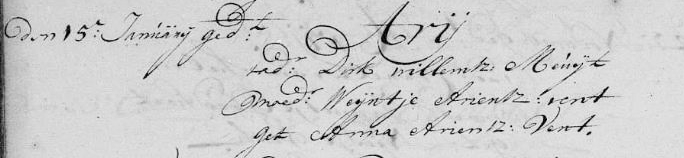 Den 15.r Januarij ged.t Arij
vad.r Dirk Willemtz: Meuijt
Moed.r Weijntje Arientz: vent
Get Anna Arientz: Vent.